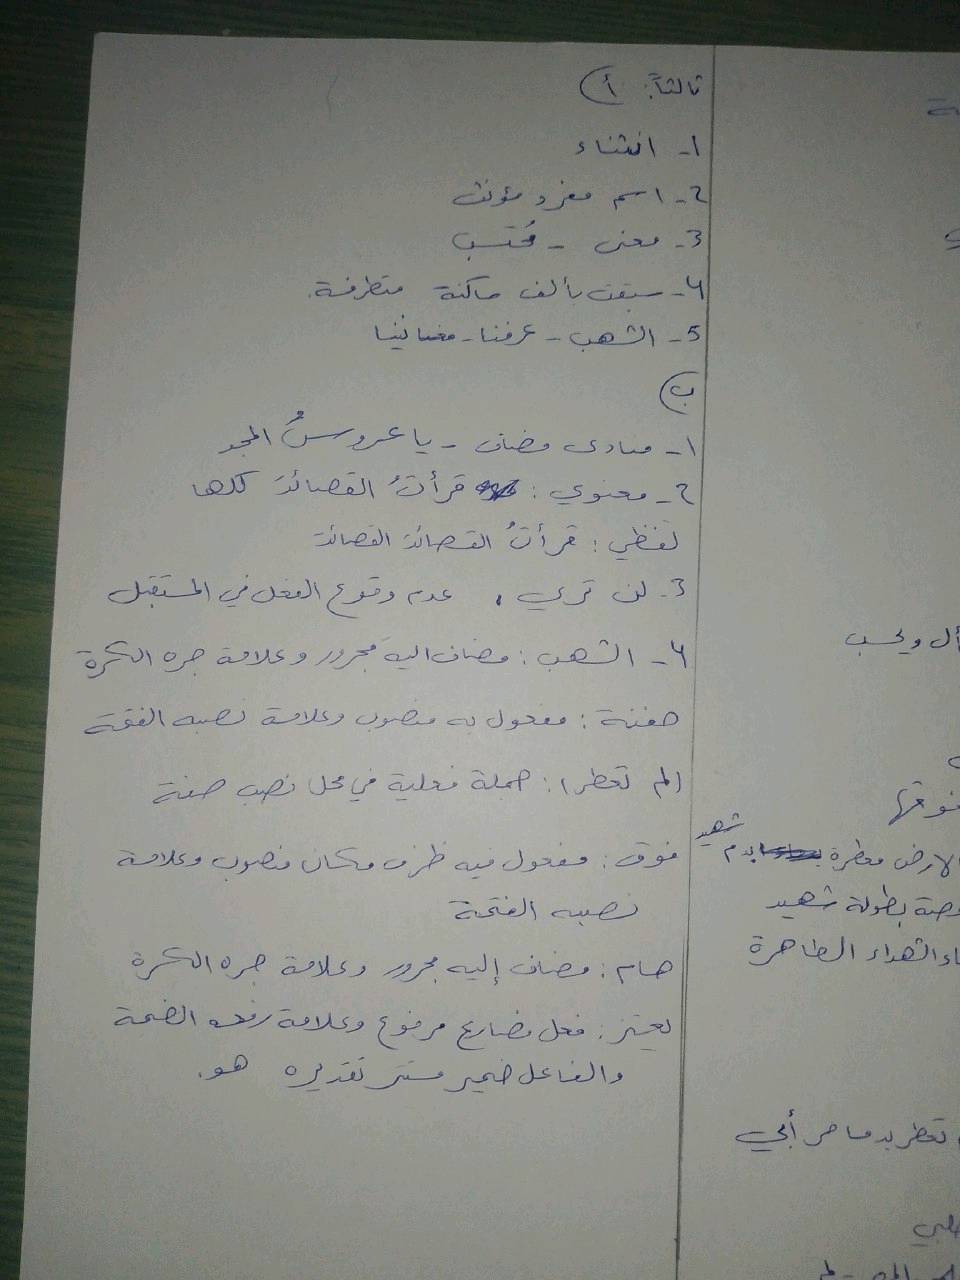 ثالثاً: أ)
1- انثناء
2- اسم مفرد مؤنث
3- معنى -
4- سبقت بألف ساكنة متطرفة.
5- الشهب - عرفنا - مغانينا
ب)
1- منادى مضاف - يا عروسُ المجد
2- معنوي: قرأتُ القصائدَ كلها
لفظي: قرأتُ القصائدَ القصائدَ
3- لن تري، عدم وقوع الفعل في المستقبل
4- الشهب: مضاف اليه مجرور وعلامة جره الكسرة
حفنة: مفعول به منصوب وعلامة نصبه الفتحة
(لم تعطر): جملة فعلية في محل نصب صفة
فوق: مفعول فيه ظرف مكان منصوب وعلامة
نصبه الفتحة
هام: مضاف إليه مجرور وعلامة جره الكسرة
يعتز: فعل مضارع مرفوع وعلامة رفعه الضمة
والفاعل ضمير مستتر تقديره هو.
أل ويحسب
فوقها
شهيد
الارض معطرة بدم
قصة بطولة شهيد
الشهداء الطاهرة
تعطر بدما حر أبي